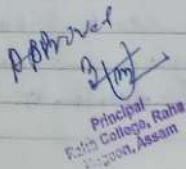 Approved
Principal
Raha College, Raha
Nagaon, Assam